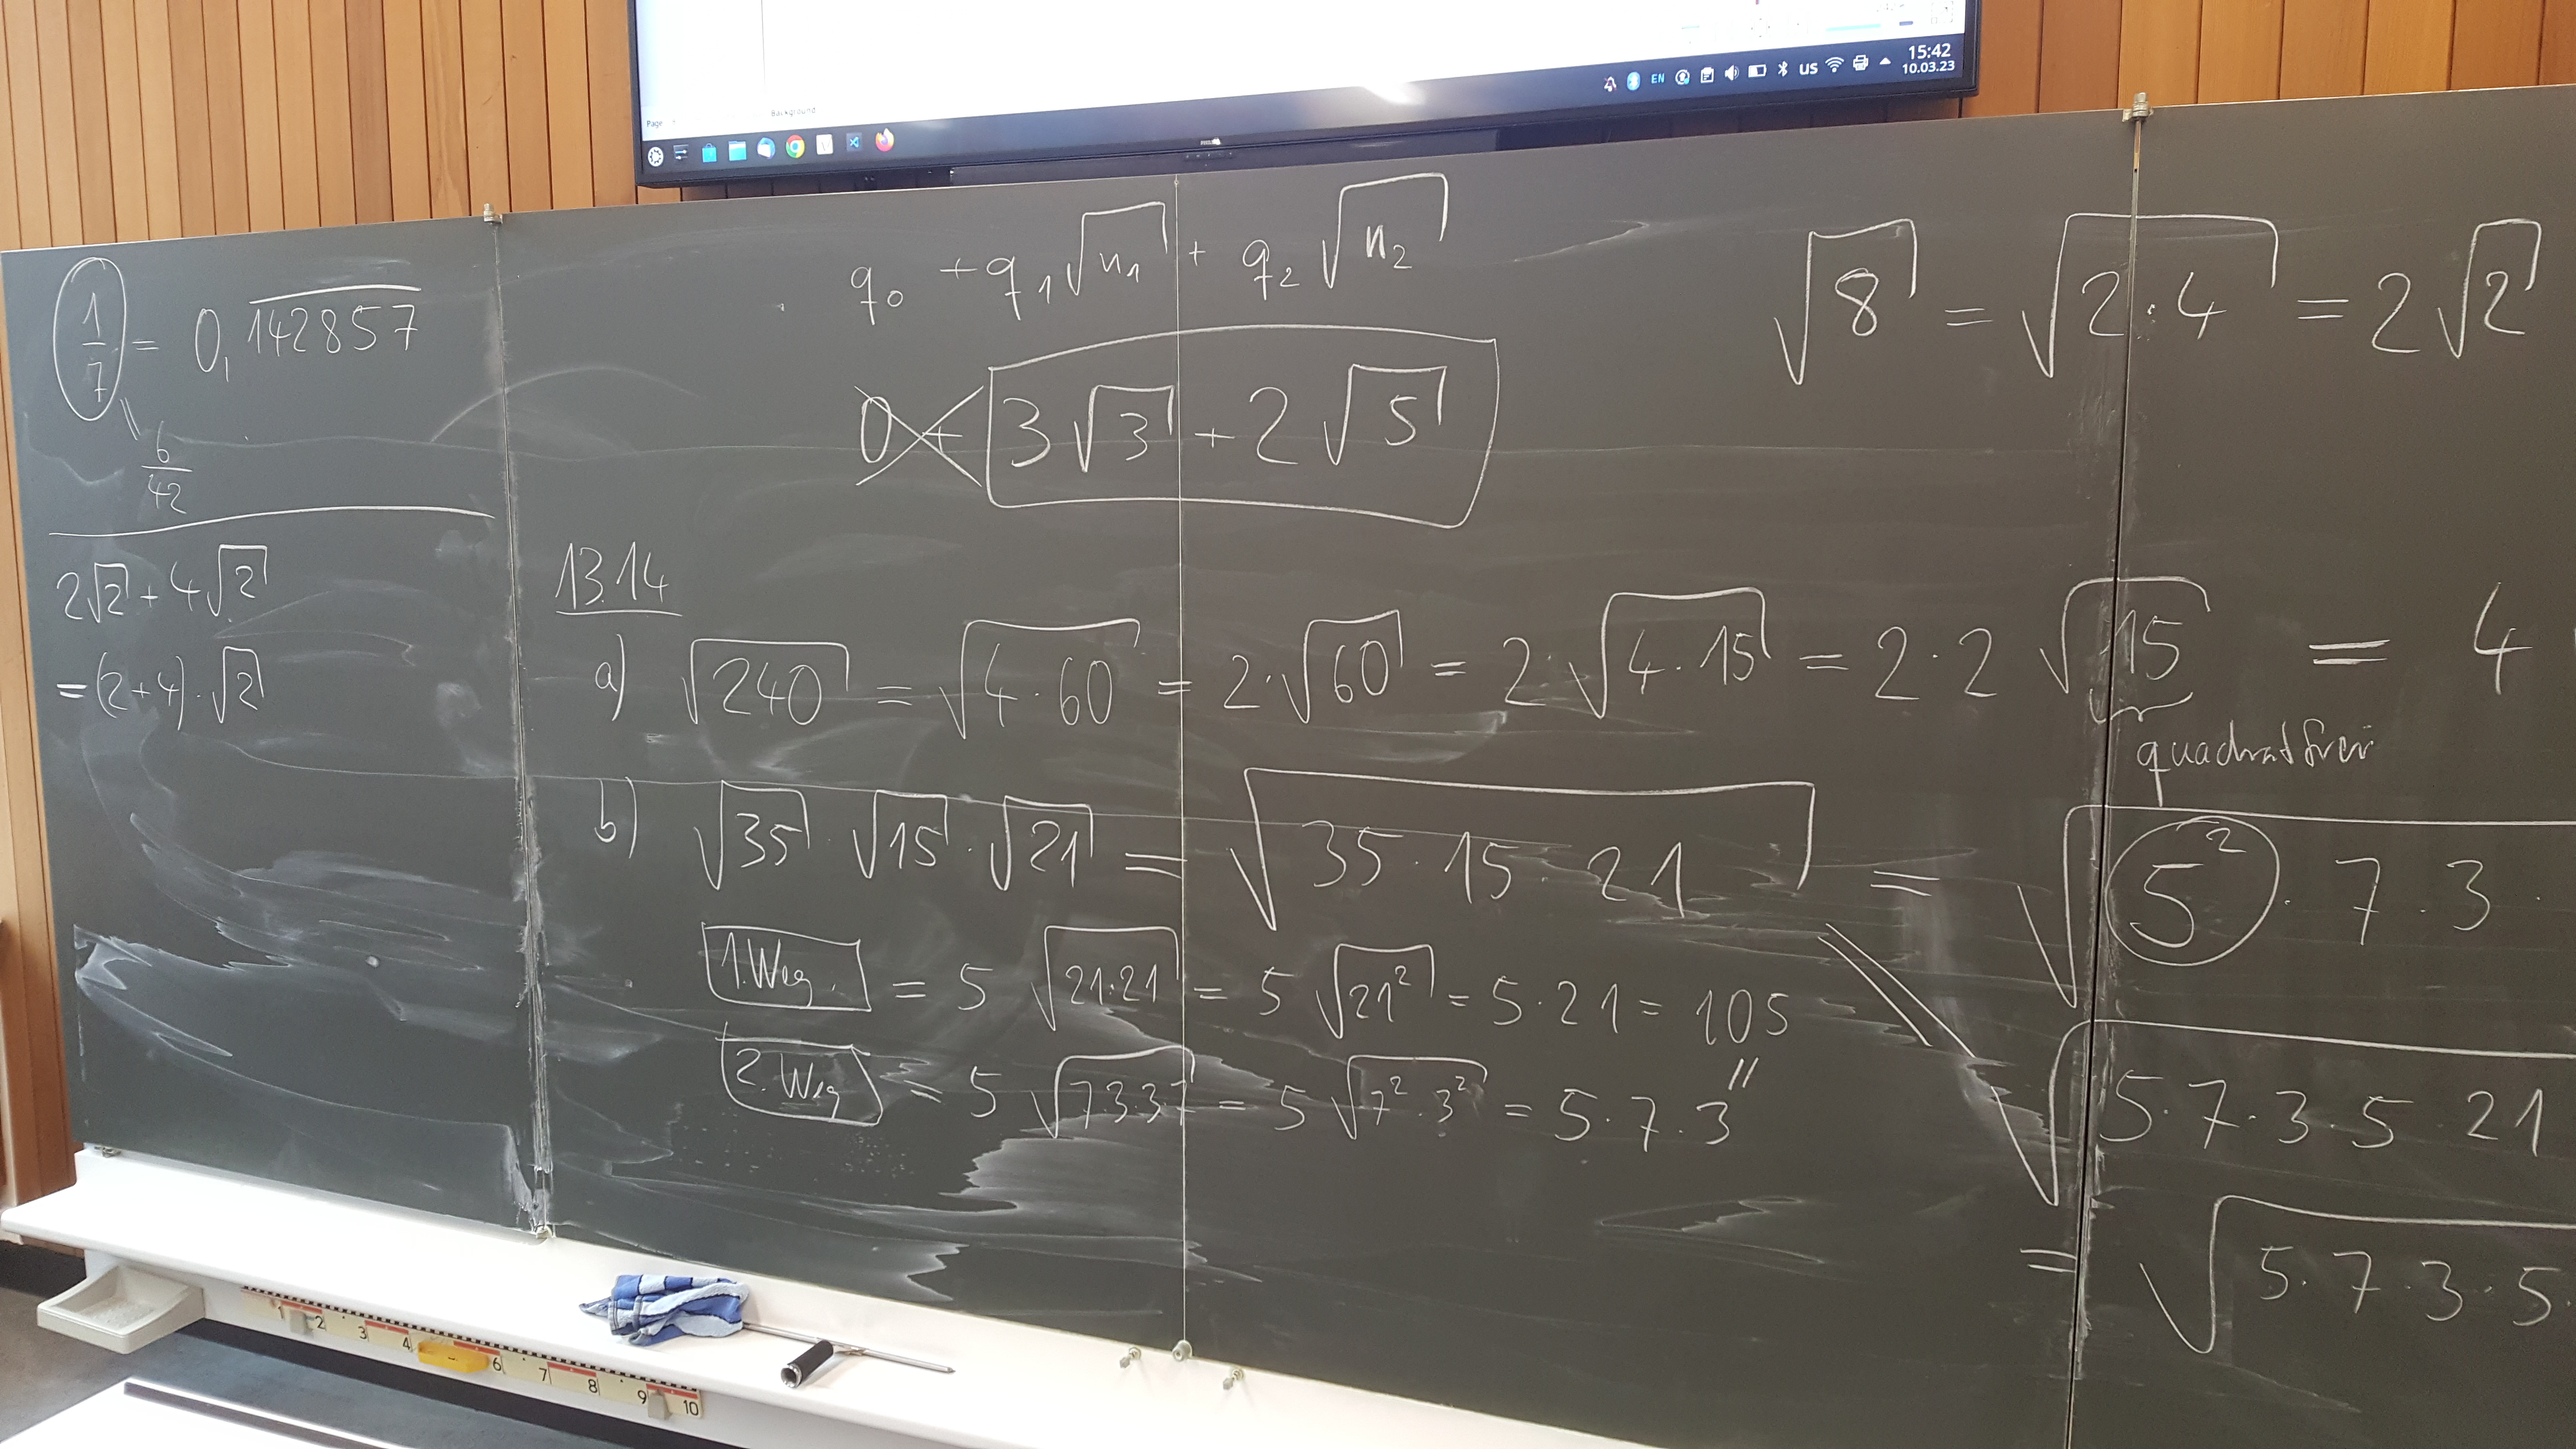 15:42
EN
US
10.03.23
Page
Background
1/7 = 0,1̅4̅2̅8̅5̅7̅
6/42
2√2 + 4√2
= (2+4)·√2
q₀ + q₁√n₁ + q₂√n₂
0 + 3√3 + 2√5
√8 = √2·4 = 2√2
13.14
a) √240 = √4·60 = 2·√60 = 2·√4·15 = 2·2 √15 = 4
quadratfrei
b) √35 · √15 · √21 = √35·15·21 = √5²·7·3·
1. Weg. = 5 √21·21 = 5 √21² = 5·21 = 105
2. Weg = 5 √7·3·3·7 = 5 √7²·3² = 5·7·3
√5·7·3·5·21
= √5·7·3·5·
1 2 3 4 6 7 8 9 10